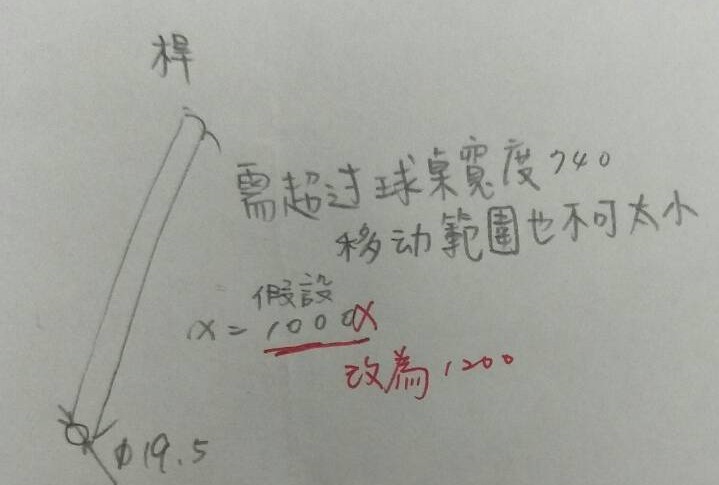 桿
需超过球桌寬度740
移动範圍也不可太小
假設
x = 1000x
改為1200
φ19.5